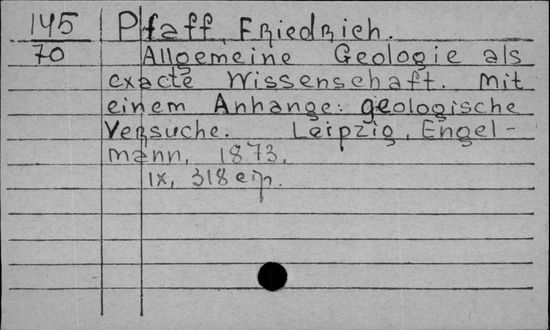 145 Pfaff, Friedrich.
70 Allgemeine Geologie als
exacte Wissenschaft. Mit
einem Anhange: geologische
Versuche. Leipzig, Engel-
mann, 1873.
IX, 318 стр.